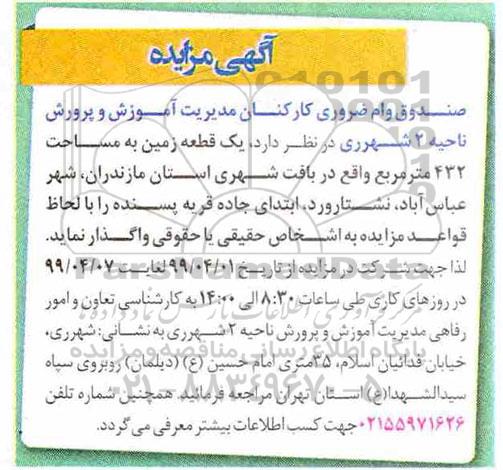 آگهی مزایده
صندوق وام ضروری کارکنان مدیریت آموزش و پرورش
ناحیه ۲ شهرری در نظر دارد، یک قطعه زمین به مساحت
۴۳۲ مترمربع واقع در بافت شهری استان مازندران، شهر
عباس آباد، نشتارود، ابتدای جاده قریه پسنده را با لحاظ
قواعد مزایده به اشخاص حقیقی یا حقوقی واگذار نماید.
لذا جهت شرکت در مزایده از تاریخ ۹۹/۰۴/۰۱ لغایت ۹۹/۰۴/۰۷
در روزهای کاری طی ساعات ۸:۳۰ الی ۱۴:۰۰ به کارشناسی تعاون و امور
رفاهی مدیریت آموزش و پرورش ناحیه ۲ شهرری به نشانی: شهرری،
خیابان فدائیان اسلام، ۳۵متری امام حسین (ع) (دیلمان) روبروی سپاه
سیدالشهدا(ع) استان تهران مراجعه فرمائید. همچنین شماره تلفن
۰۲۱۵۵۹۷۱۶۲۶ جهت کسب اطلاعات بیشتر معرفی می گردد.
ParsNamadData
پایگاه اطلاع رسانی مناقصه و مزایده
۰۲۱-۸۸۳۴۹۶۷۰-۵